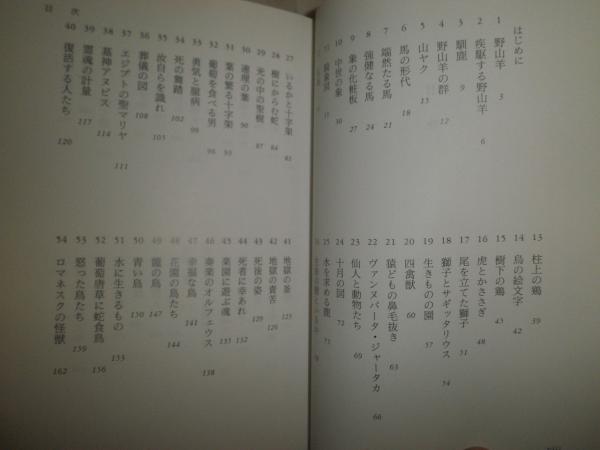 はじめに
1 野山羊 3
2 疾駆する野山羊 6
3 馴鹿 9
4 野山羊の群 11
5 山ヤク 15
6 馬の形代 18
7 端然たる馬 21
8 強健なる馬 24
9 象の化粧板 27
10 中世の象 30
11 騎象図
13 柱上の鶏 39
14 鳥の絵文字 42
15 樹下の鶏 45
16 虎とかささぎ 48
17 尾を立てた獅子 51
18 獅子とサギッタリウス 54
19 生きものの園 57
20 四禽獣 60
21 猿どもの鼻毛抜き 63
22 ヴァンヌパータ・ジャータカ 66
23 仙人と動物たち 69
24 十月の図 72
25 水を求める鹿 75
目次
27 いるかと十字架 81
28 樹にからむ蛇 84
29 死の中の聖樹 87
30 連理の葉 90
31 葉の繁る十字架 93
32 葡萄を食べる男 96
33 勇気と臆病 99
34 死の舞踏 102
35 汝自らを識れ 105
36 葬儀の図 108
37 エジプトの聖マリヤ 111
38 墓神アヌビス 114
39 霊魂の計量 117
40 復活する人たち 120
41 地獄の釜 123
42 地獄の責苦 126
43 死後の姿 129
44 死者に幸あれ 132
45 楽園に遊ぶ魂 135
46 奏楽のオルフェウス 138
47 幸福な鳥 141
48 花園の鳥たち 144
49 籠の鳥 147
50 青い鳥 150
51 水に生きるもの 153
52 葡萄唐草に蛇食鳥 156
53 怒った鳥たち 159
54 ロマネスクの怪獣 162